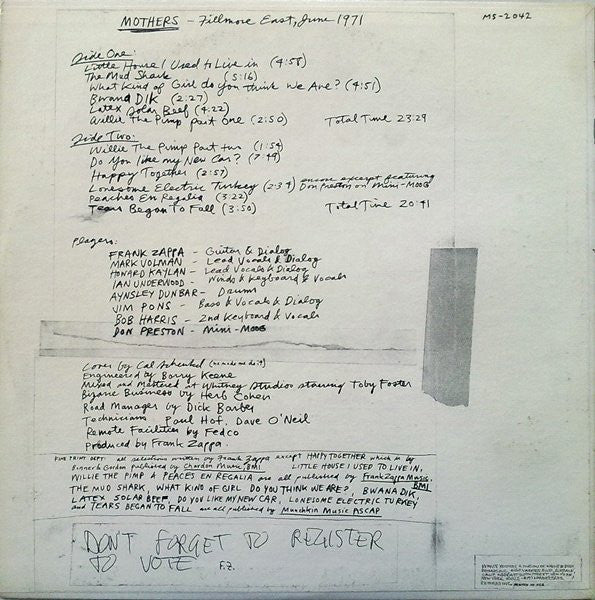 MOTHERS - Fillmore East, June 1971
MS-2042
Side One:
Little House I Used to Live in (4:58)
The Mud Shark (5:16)
What Kind of Girl do you think We Are? (4:51)
Bwana DIK (2:27)
Latex Solar Beef (4:22)
Willie The Pimp part One (2:50) Total Time 23:29
Side Two:
Willie The Pimp Part two (1:54)
Do You like my New Car? (7:49)
Happy Together (2:57)
Lonesome Electric Turkey (2:34) encore excerpt featuring
Don Preston on Mini-MOOG
Peaches En Regalia (3:22)
Tears Began To Fall (3:50) Total Time 20:41
Players:
FRANK ZAPPA - Guitar & Dialog
MARK VOLMAN - Lead Vocals & Dialog
HOWARD KAYLAN - Lead Vocals & Dialog
IAN UNDERWOOD - Winds & Keyboard & Vocals
AYNSLEY DUNBAR - Drums
JIM PONS - Bass & Vocals & Dialog
BOB HARRIS - 2nd Keyboard & Vocals
DON PRESTON - Mini-MOOG
Cover by Cal Schenkel (he made me do it)
Engineered by Barry Keene
Mixed and Mastered at Whitney Studios starring Toby Foster
Bizarre Business by Herb Cohen
Road Manager by Dick Barber
Technicians Paul Hof, Dave O'Neil
Remote Facilities by Fedco
Produced by Frank Zappa.
FINE PRINT DEPT: all selections written by Frank Zappa except HAPPY TOGETHER which is by
Bonner & Gordon published by Chardon Music, BMI LITTLE HOUSE I USED TO LIVE IN,
WILLIE THE PIMP & PEACES EN REGALIA are all published by Frank Zappa Music, BMI
THE MUD SHARK, WHAT KIND OF GIRL DO YOU THINK WE ARE?, BWANA DIK,
LATEX SOLAR BEEF, DO YOU LIKE MY NEW CAR, LONESOME ELECTRIC TURKEY
and TEARS BEGAN TO FALL are all published by Munchkin Music ASCAP
DON'T FORGET TO REGISTER
TO VOTE F.Z.